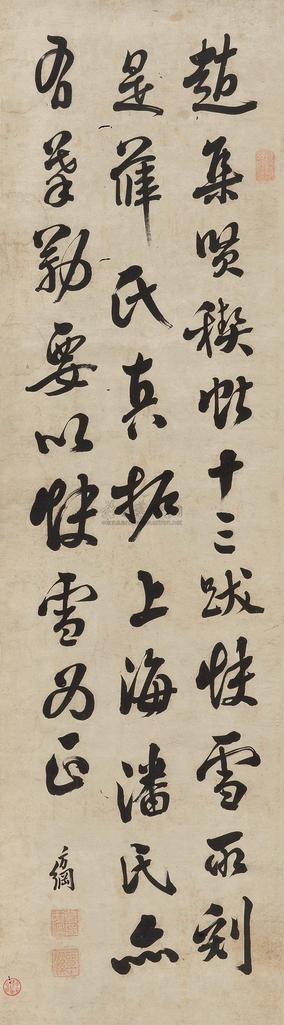 趙集賢稧帖十三跋快雪所刻
是薛氏真拓上海潘氏亦
有摹勒要以快雪為正
方綱